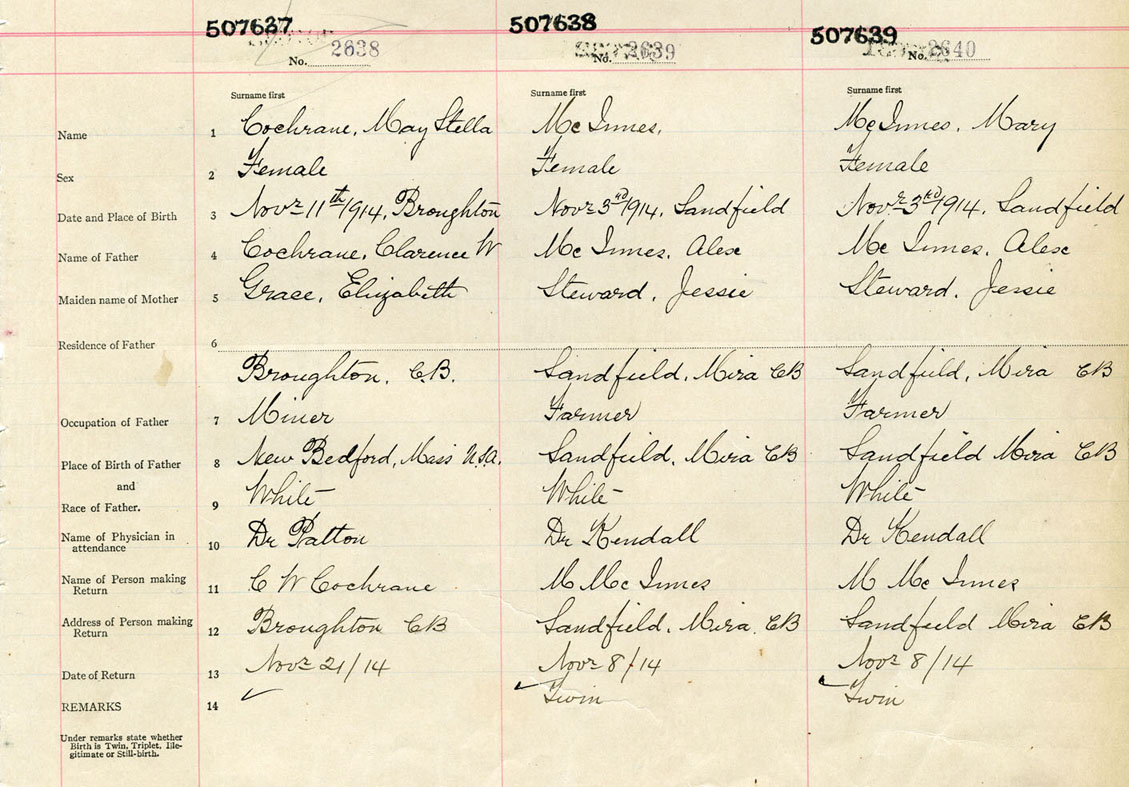 507637 507638 507639
No. 2638 No. 2639 No. 2640
Surname first Surname first Surname first
Name 1 Cochrane, May Stella Mc Innes, Mc Innes, Mary
Sex 2 Female Female Female
Date and Place of Birth 3 Novr 11th/1914, Broughton Novr 3rd/1914, Sandfield Novr 3rd/1914, Sandfield
Name of Father 4 Cochrane, Clarence W Mc Innes, Alex Mc Innes, Alex
Maiden name of Mother 5 Grace, Elizabeth Steward, Jessie Steward, Jessie
Residence of Father 6
Broughton, C.B. Sandfield, Mira CB Sandfield, Mira CB
Occupation of Father 7 Miner Farmer Farmer
Place of Birth of Father 8 New Bedford, Mass U.S.A. Sandfield, Mira CB Sandfield Mira CB
and
Race of Father. 9 White White White
Name of Physician in
attendance 10 Dr Patton Dr Kendall Dr Kendall
Name of Person making
Return 11 C W Cochrane M Mc Innes M Mc Innes
Address of Person making
Return 12 Broughton CB Sandfield, Mira, CB Sandfield Mira CB
Date of Return 13 Novr 21/14 Novr 8/14 Novr 8/14
REMARKS 14 Twin Twin
Under remarks state whether
Birth is Twin, Triplet, Ille-
gitimate or Still-birth.